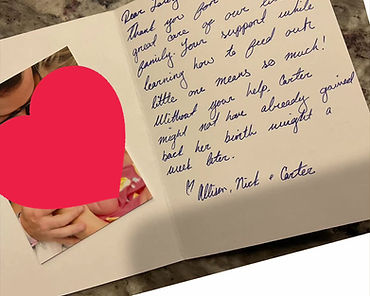 Dear
Thank you for
great care of our
family. Your support while
learning how to feed our
little one means so much!
Without your help, Carter
might not have already gained
back her birth weight a
week later.
♡ Allison, Nick + Carter